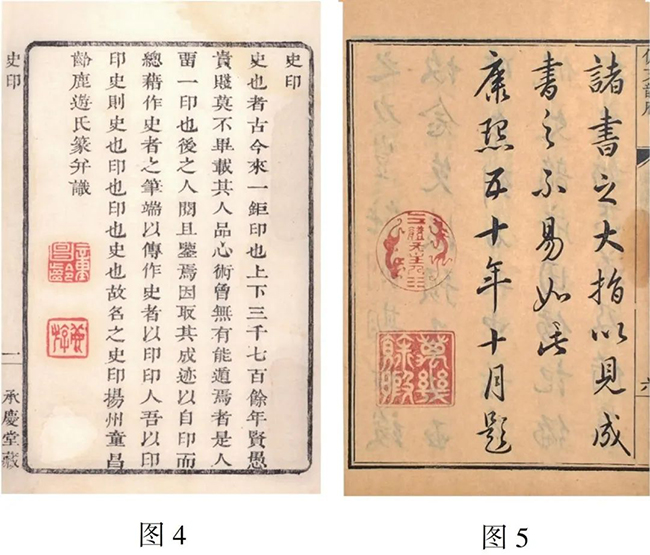 史印
史也者古今來一鉅印也上下三千七百餘年賢愚
貴賤莫不畢載其人品心術曾無有能遁焉者是人
畱一印也後之人閱且鑒焉因取其成迹以自印而
總藉作史者之筆端以傳作史者以印印人吾以印
印史則史也印也印也史也故名之史印揚州童昌
齡鹿遊氏篆弁識
史印
一
承慶堂藏
图 4
諸書之大指以見成
書之不易如此
康熙五十年十月題
體元主人
萬幾餘暇
图 5